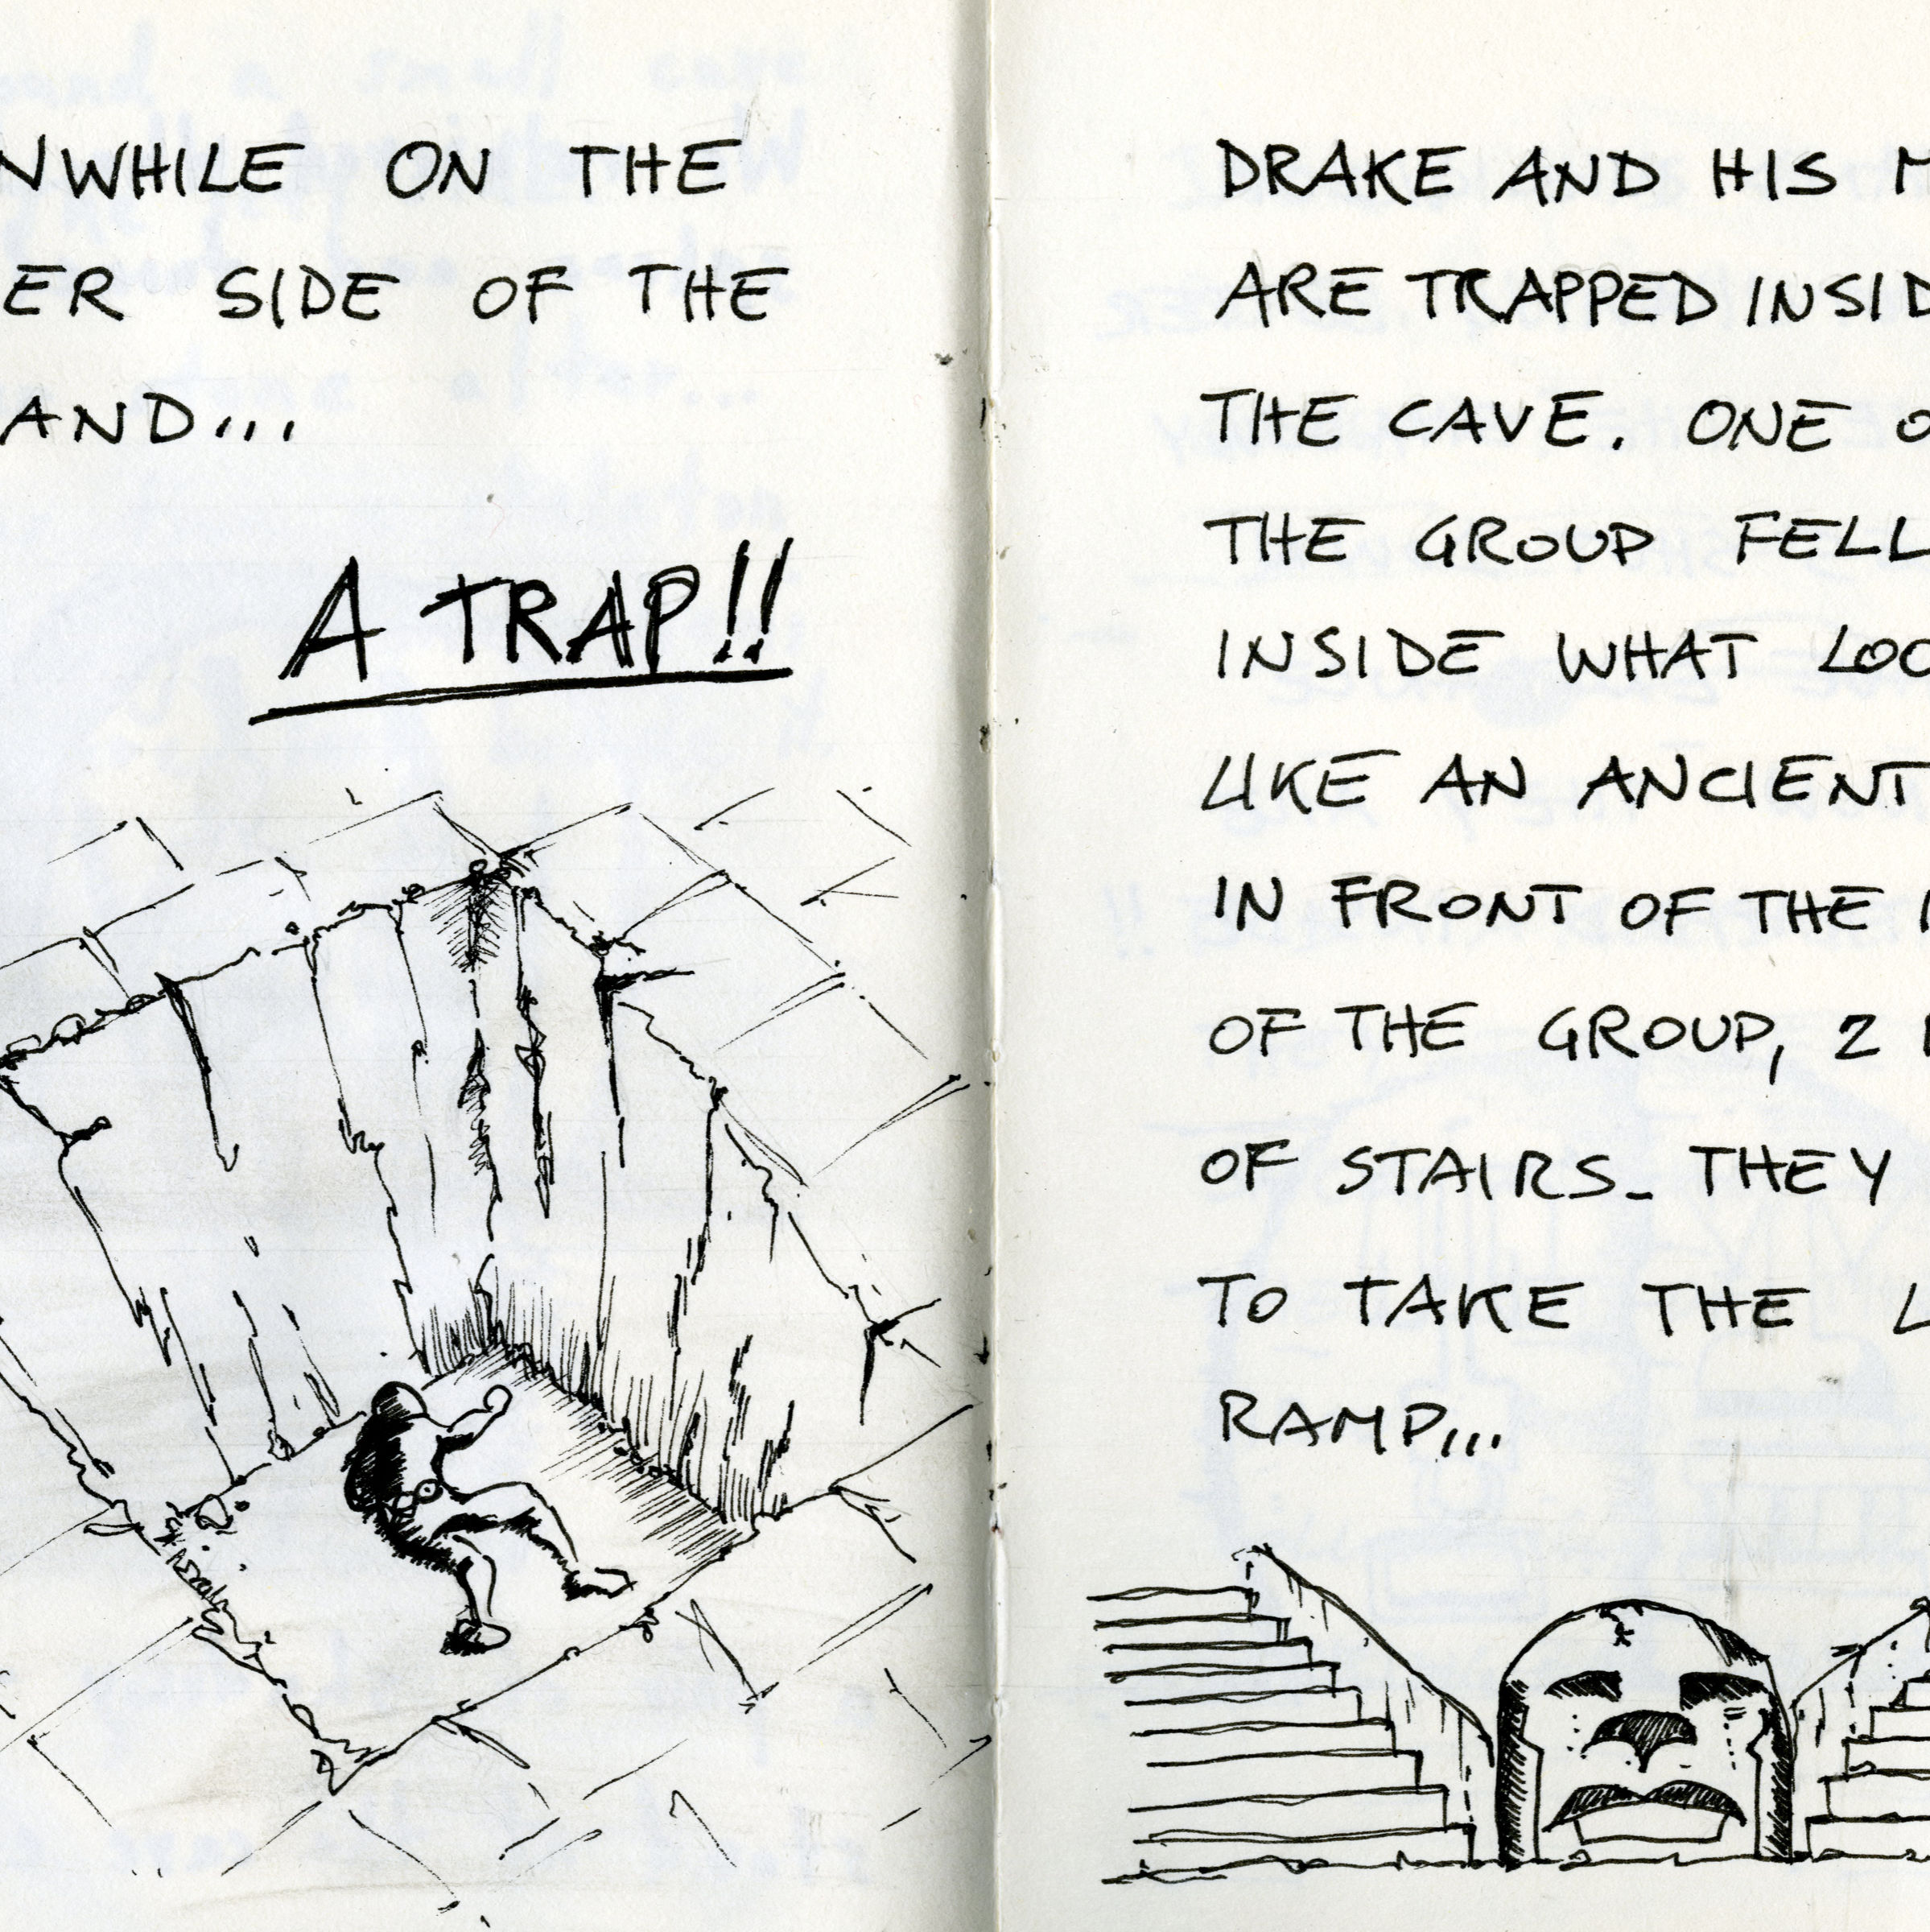 NWHILE ON THE
ER SIDE OF THE
AND...
A TRAP!!
DRAKE AND HIS M
ARE TRAPPED INSID
THE CAVE. ONE O
THE GROUP FELL
INSIDE WHAT LOO
LIKE AN ANCIENT
IN FRONT OF THE
OF THE GROUP, 2
OF STAIRS_ THEY
TO TAKE THE L
RAMP...